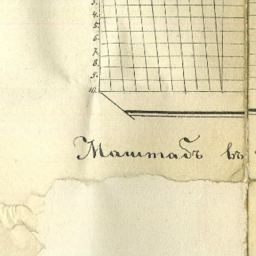 3.
4.
5.
6.
7.
8.
9.
10.
Масштабъ въ